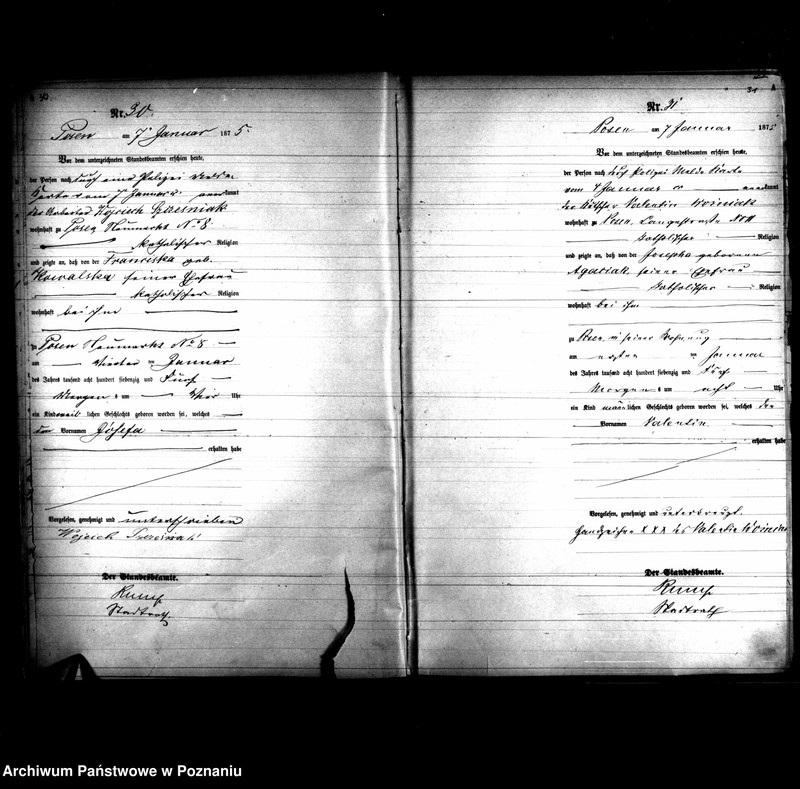 30
Nr. 30.
Posen am 7 Januar 1875.
Vor dem unterzeichneten Standesbeamten erschien heute,
der Person nach durch eine Polizei Melde
Karte vom 7 Januar cr. anerkannt
der Arbeiter Wojciech
wohnhaft zu Posen Neumarkt No 8
katholischer Religion
und zeigte an, daß von der Franciska geb.
Kowalska seiner Ehefrau
katholischer Religion
wohnhaft bei ihm
zu Posen Neumarkt No 8
am vierten Januar
des Jahres tausend acht hundert siebenzig und Fünf
Morgens um vier Uhr
ein Kind weiblichen Geschlechts geboren worden sei, welches
den Vornamen Josefa
erhalten habe
Vorgelesen, genehmigt und unterschrieben
Wojciech
Der Standesbeamte.
Rump
Stadtrath.
31
Nr. 31
Posen am 7 Januar 1875
Vor dem unterzeichneten Standesbeamten erschien heute,
der Person nach durch Polizei Melde Karte
vom 7 Januar cr anerkannt
der Valentin Woiniak
wohnhaft zu Posen, Langestraße No
katholischer Religion
und zeigte an, daß von der Josepha geborenen
seiner Ehefrau
katholischer Religion
wohnhaft bei ihm
zu Posen in seiner Wohnung
am ersten Januar
des Jahres tausend acht hundert siebenzig und Fünf
Morgens um acht Uhr
ein Kind männlichen Geschlechts geboren worden sei, welches den
Vornamen Valentin
erhalten habe
Vorgelesen, genehmigt und
Handzeichen X X X des Valentin
Der Standesbeamte.
Rump
Stadtrath
Archiwum Państwowe w Poznaniu